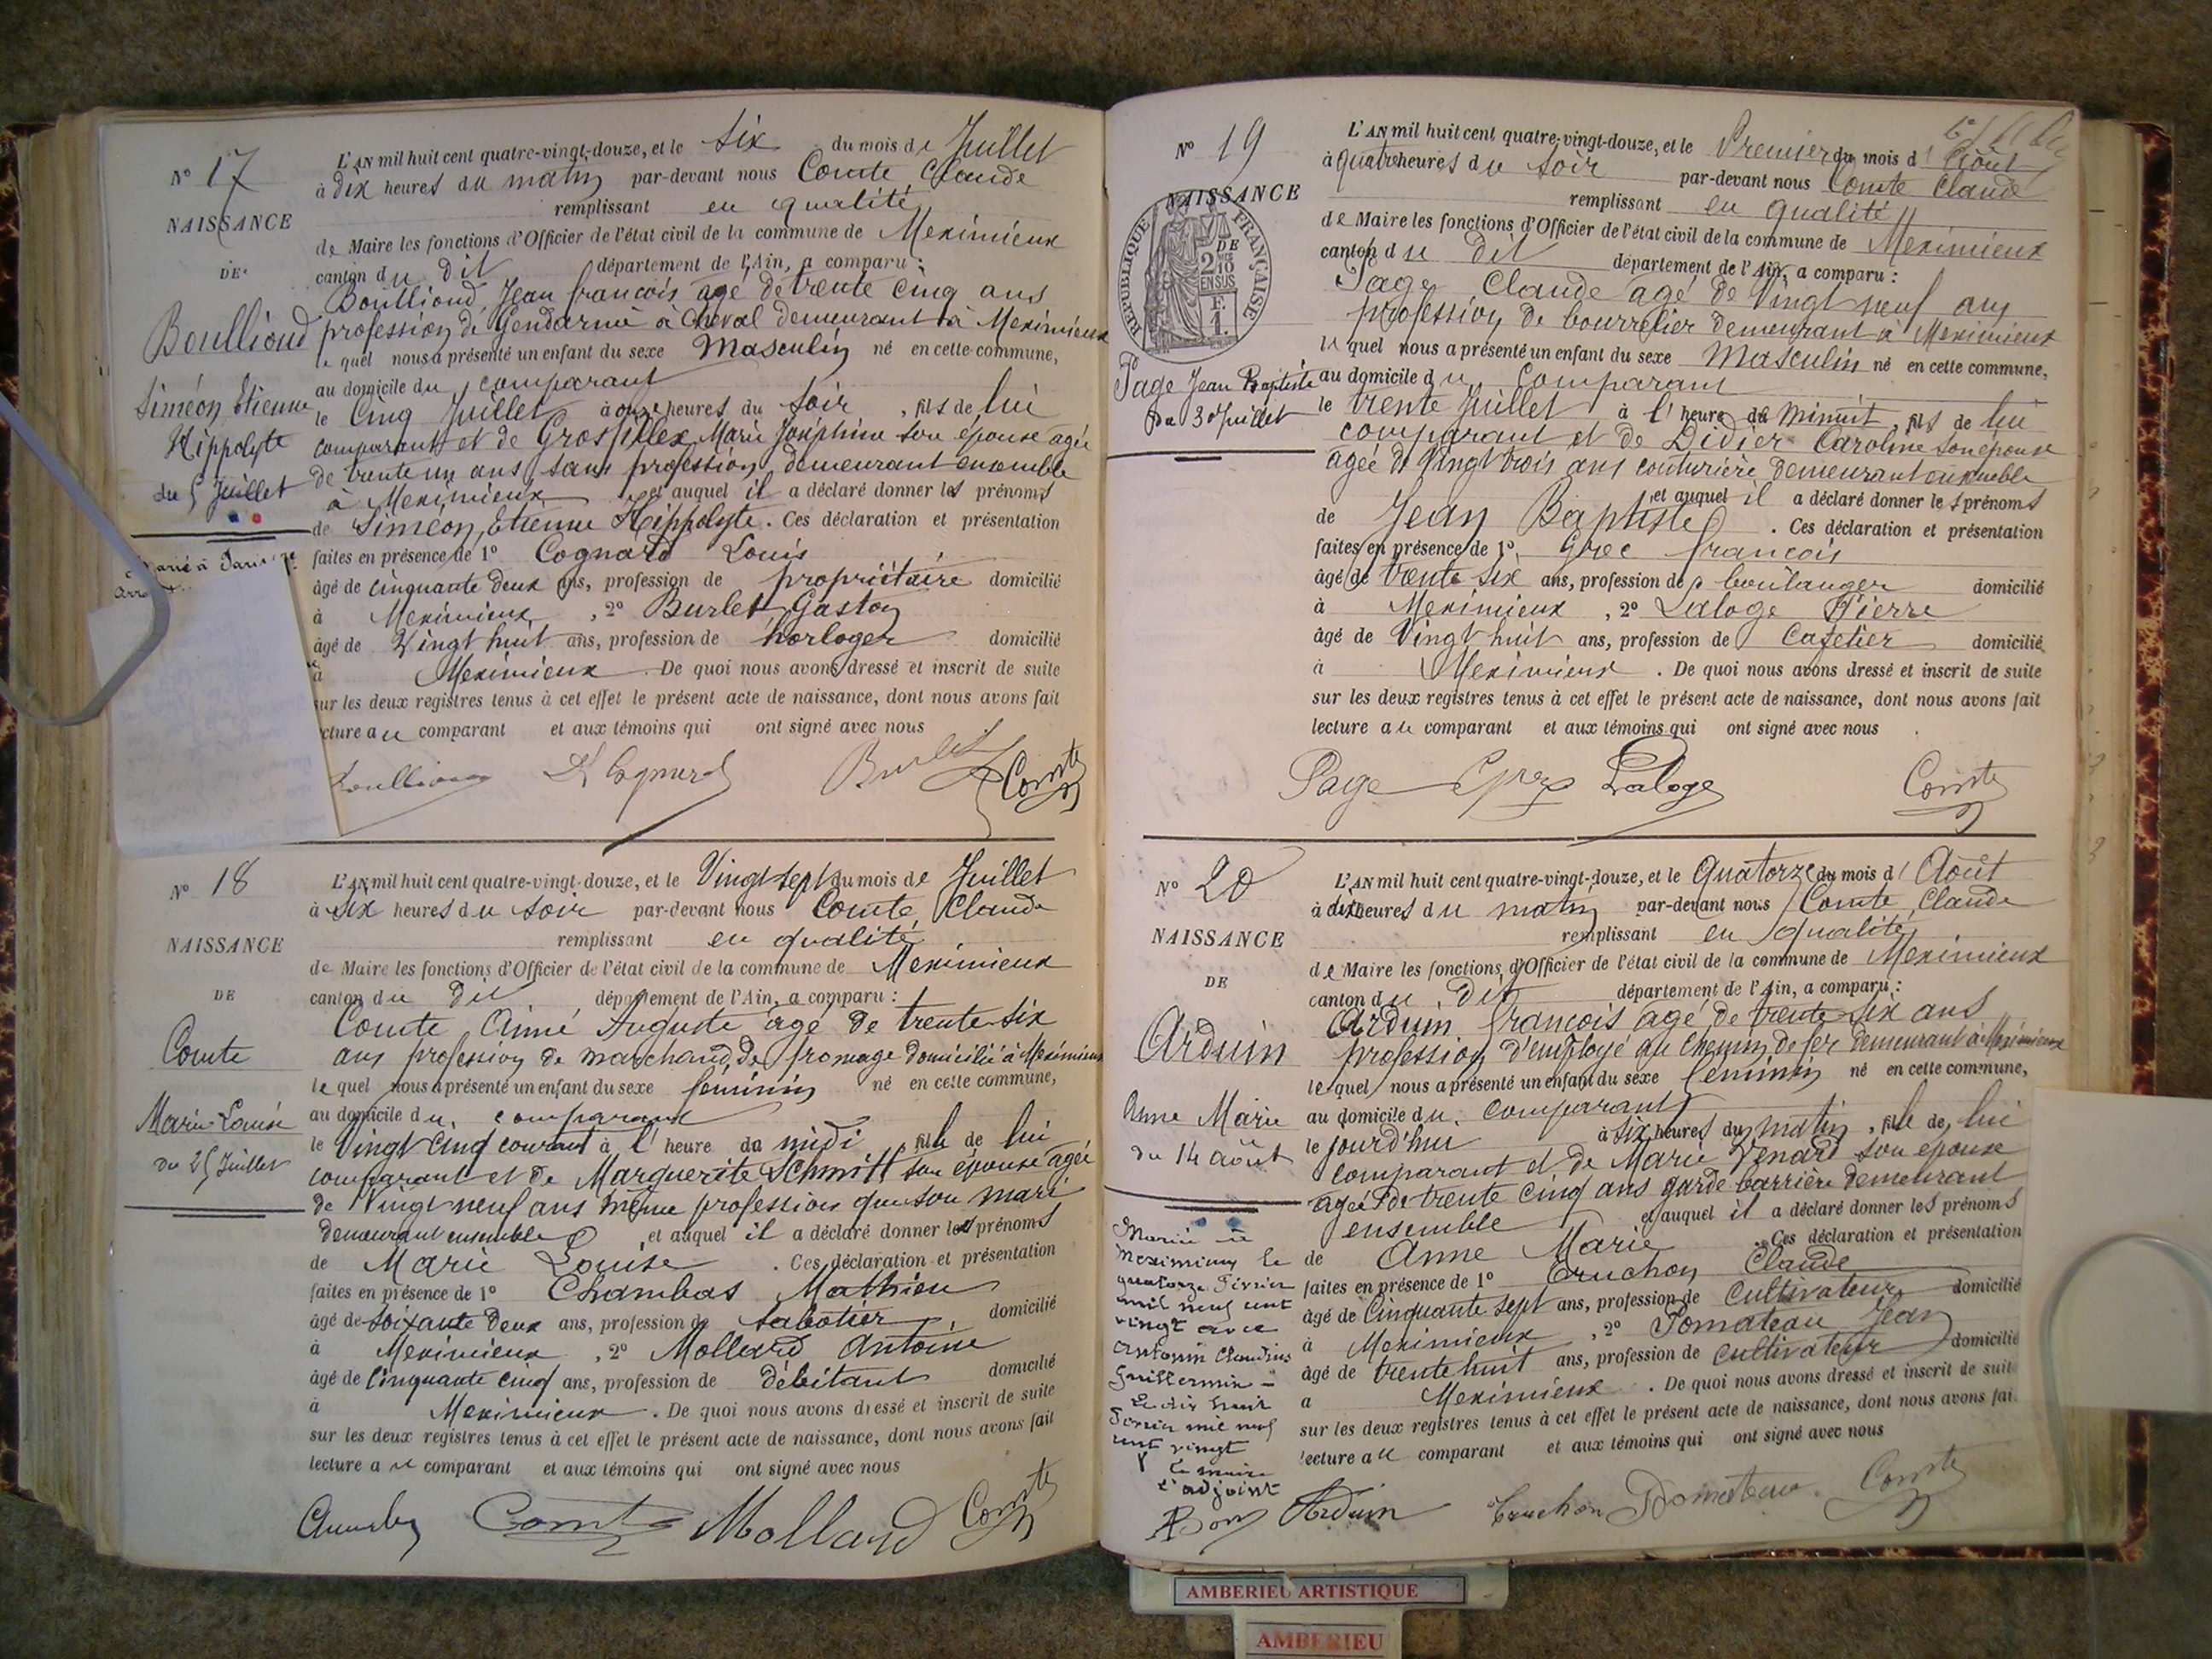 N° 17
NAISSANCE
DE
Boullioud
Siméon Etienne
Hippolyte
du 5 Juillet
Marié à Paris
L'AN mil huit cent quatre-vingt-douze, et le Six du mois de Juillet
à dix heures du matin par-devant nous Comte Claude
remplissant en qualité
de Maire les fonctions d'Officier de l'état civil de la commune de Meximieux
canton du dit département de l'Ain, a comparu :
Boullioud Jean francois agé de trente cinq ans
profession de Gendarme à cheval demeurant à Meximieux
le quel nous a présenté un enfant du sexe Masculin né en cette commune,
au domicile du comparant
le Cinq Juillet à onze heures du soir, fils de lui
comparant et de Grosfillex Marie Joséphine son épouse agée
de trente un ans sans profession demeurant ensemble
à Meximieux et auquel il a déclaré donner les prénoms
de Siméon, Etienne Hippolyte. Ces déclaration et présentation
faites en présence de 1° Cognard Louis
âgé de cinquante deux ans, profession de propriétaire domicilié
à Meximieux, 2° Burlet Gaston
âgé de Vingt huit ans, profession de horloger domicilié
à Meximieux. De quoi nous avons dressé et inscrit de suite
sur les deux registres tenus à cet effet le présent acte de naissance, dont nous avons fait
cture au comparant et aux témoins qui ont signé avec nous
Boullioud L Cognard Burlet Comte
N° 18
NAISSANCE
DE
Comte
Marie Louise
du 25 Juillet
L'AN mil huit cent quatre-vingt-douze, et le Vingt sept du mois de Juillet
à Six heures du soir par-devant nous Comte Claude
remplissant en qualité
de Maire les fonctions d'Officier de l'état civil de la commune de Meximieux
canton du dit département de l'Ain, a comparu :
Comte Aimé Auguste agé de trente-six
ans profession de marchand de fromage domicilié à Meximieux
le quel nous a présenté un enfant du sexe féminin né en cette commune,
au domicile du comparant
le Vingt cinq courant à l'heure da midi, fille de lui
comparant et de Marguerite Schmitt son épouse agée
de Vingt neuf ans même profession que son mari
demeurant ensemble, et auquel il a déclaré donner les prénoms
de Marie Louise. Ces déclaration et présentation
faites en présence de 1° Chambas Mathieu
âgé de Soixante deux ans, profession de sabotier domicilié
à Meximieux, 2° Mollard Antoine
âgé de Cinquante cinq ans, profession de débitant domicilié
à Meximieux. De quoi nous avons dressé et inscrit de suite
sur les deux registres tenus à cet effet le présent acte de naissance, dont nous avons fait
lecture au comparant et aux témoins qui ont signé avec nous
Comte Mollard Comte
N° 19
NAISSANCE
RÉPUBLIQUE FRANÇAISE
2 DE 10 EN SUS
F. 1.
Page Jean Baptiste
du 30 Juillet
L'AN mil huit cent quatre-vingt-douze, et le Premier du mois d'Août
à quatre heures du soir par-devant nous Comte Claude
remplissant en qualité
de Maire les fonctions d'Officier de l'état civil de la commune de Meximieux
canton du Dit département de l'Ain, a comparu :
Page Claude agé de Vingt neuf ans
profession de bourrelier demeurant à Meximieux
le quel nous a présenté un enfant du sexe Masculin né en cette commune,
au domicile du comparant
le trente Juillet à l'heure de Minuit, fils de lui
comparant et de Didier Caroline son épouse
agée de Vingt trois ans couturière demeurant ensemble
et auquel il a déclaré donner les prénoms
de Jean Baptiste. Ces déclaration et présentation
faites en présence de 1° Grec francois
âgé de trente six ans, profession de boulanger domicilié
à Meximieux, 2° Laloge Pierre
âgé de Vingt huit ans, profession de Cafetier domicilié
à Meximieux. De quoi nous avons dressé et inscrit de suite
sur les deux registres tenus à cet effet le présent acte de naissance, dont nous avons fait
lecture au comparant et aux témoins qui ont signé avec nous
Page Laloge Comte
N° 20
NAISSANCE
DE
Arduin
Anne Marie
du 14 août
Mariée à
Meximieux le
quatorze Février
mil neuf cent
vingt avec
Antonin Claudius
Guillermin -
Le dix huit
Février mil neuf
cent vingt
Le maire
l'adjoint
L'AN mil huit cent quatre-vingt-douze, et le Quatorze du mois d'Août
à dix heures du matin par-devant nous Comte Claude
remplissant en qualité
de Maire les fonctions d'Officier de l'état civil de la commune de Meximieux
canton du Dit département de l'Ain, a comparu :
Arduin francois agé de trente-six ans
profession d'employé au Chemin de fer demeurant à Meximieux
le quel nous a présenté un enfant du sexe féminin né en cette commune,
au domicile du comparant
le jourd'hui à six heures du matin, fille de lui
comparant et de Marie Venard son épouse
agée de trente cinq ans garde barrière demeurant
ensemble et auquel il a déclaré donner les prénoms
de Anne Marie. Ces déclaration et présentation
faites en présence de 1° Cruchon Claude
âgé de Cinquante sept ans, profession de Cultivateur domicilié
à Meximieux, 2° Pomateau Jean
âgé de trente huit ans, profession de cultivateur domicilié
a Meximieux. De quoi nous avons dressé et inscrit de suit
sur les deux registres tenus à cet effet le présent acte de naissance, dont nous avons fai
lecture au comparant et aux témoins qui ont signé avec nous
Arduin Cruchon Comte
AMBERIEU ARTISTIQUE
AMBERIEU